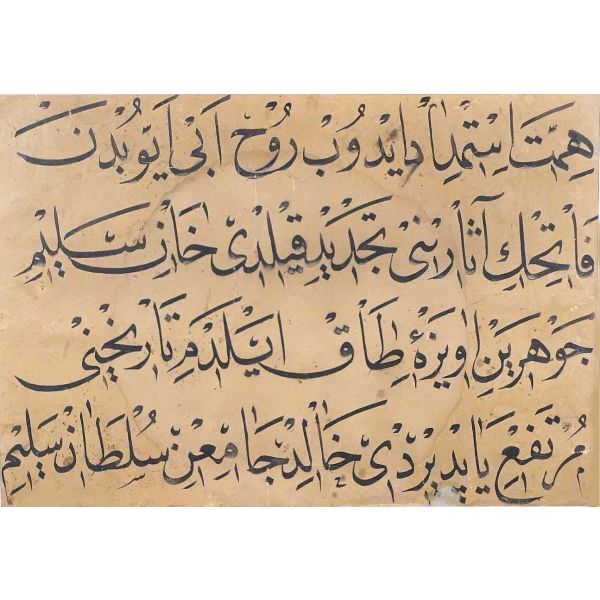 همت استمداد ايدوب روح ابى ايوبدن
فاتحك آثارينى تجديد قيلدى خان سليم
جوهرين اويزۀ طاق ايلدم تاريخنى
مرتفع ياپديردى خالد جامعن سلطان سليم